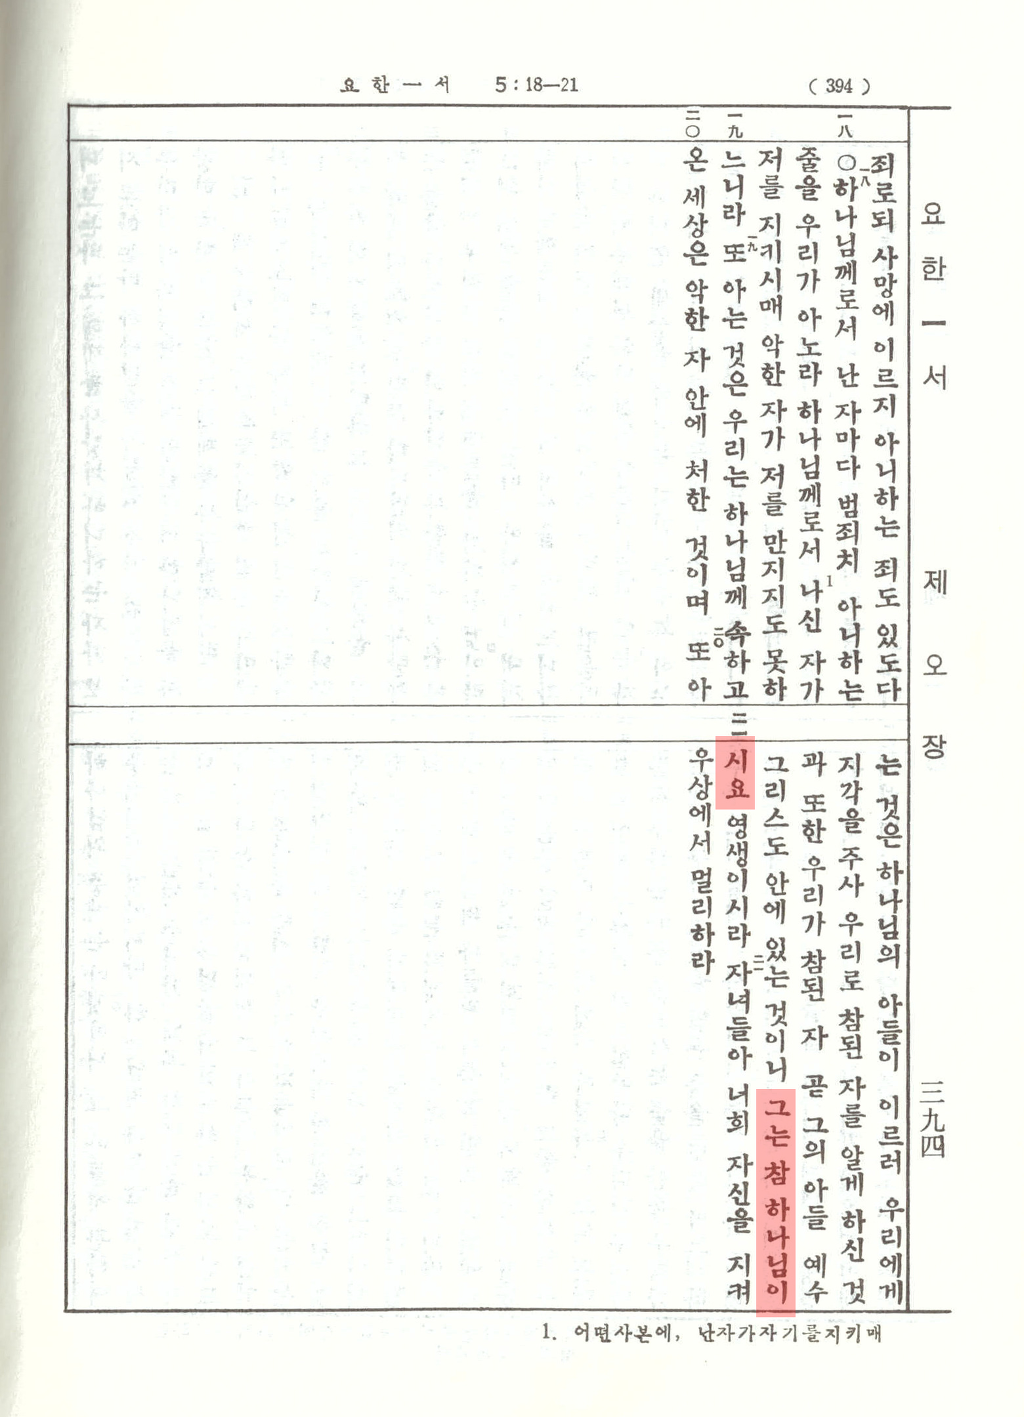 요 한 一 서 5 : 18—21 ( 394 )
요 한 一 서 제 오 장 三九四
一八
一九
二〇
죄로되 사망에 이르지 아니하는 죄도 있도다
○一八하나님께로서 난 자마다 범죄치 아니하는
줄을 우리가 아노라 하나님께로서 1나신 자가
저를 지키시매 악한 자가 저를 만지지도 못하
느니라 一九또 아는 것은 우리는 하나님께 속하고
온 세상은 악한 자 안에 처한 것이며 二〇또 아
二一
는 것은 하나님의 아들이 이르러 우리에게
지각을 주사 우리로 참된 자를 알게 하신 것
과 또한 우리가 참된 자 곧 그의 아들 예수
그리스도 안에 있는 것이니 그는 참 하나님이
시요 영생이시라 二一자녀들아 너희 자신을 지켜
우상에서 멀리하라
1. 어떤사본에, 난자가자기를지키매